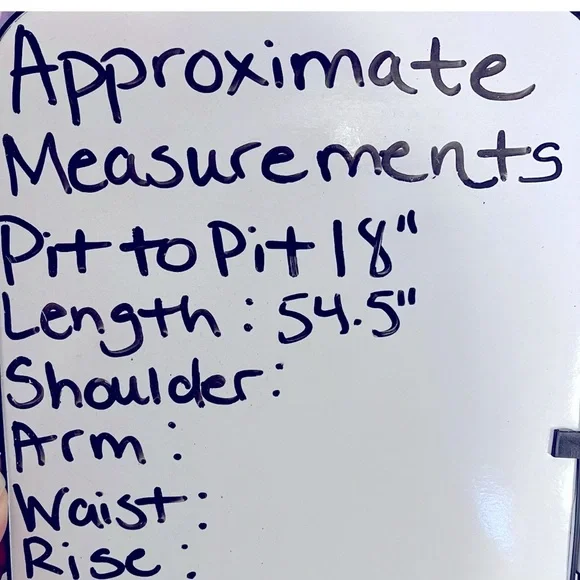 Approximate
Measurements
Pit to Pit 18"
Length: 54.5"
Shoulder:
Arm:
Waist:
Rise: